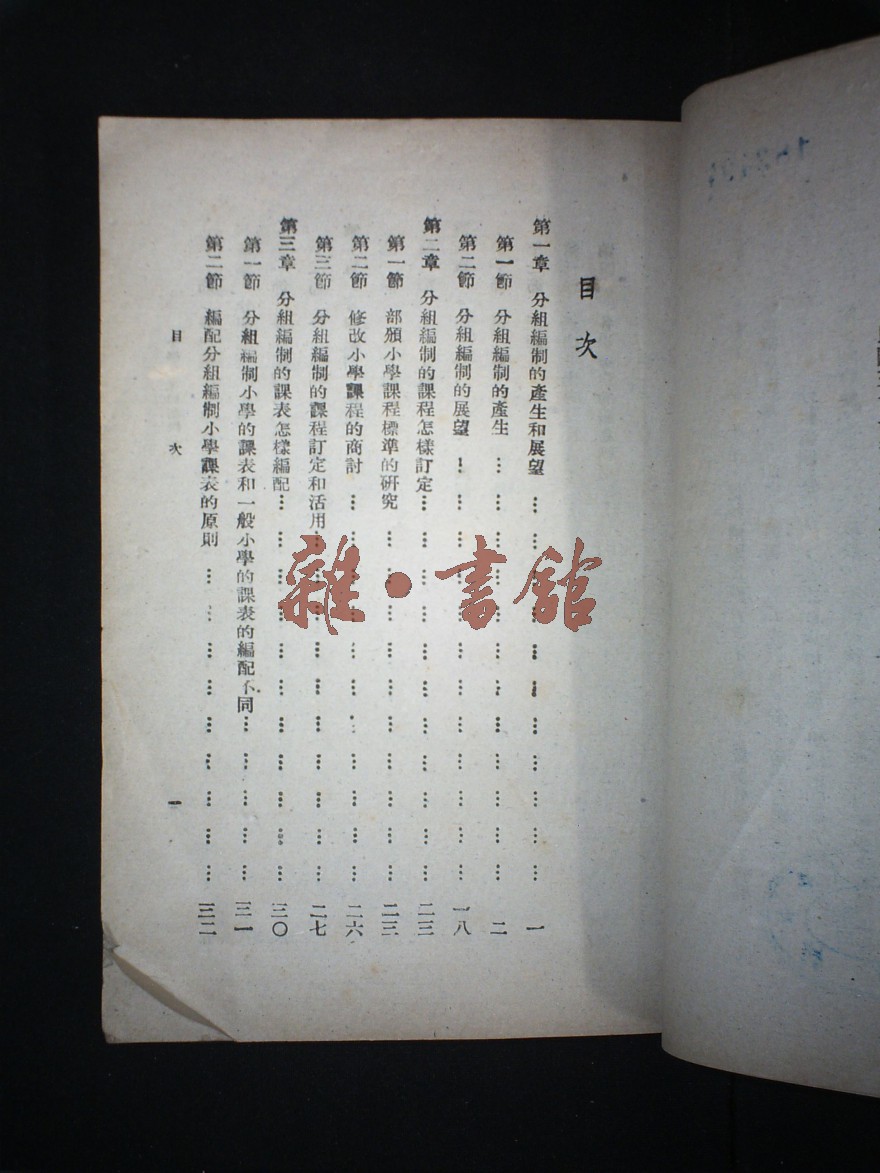 目次
第一章 分組編制的產生和展望………………………………一
第一節 分組編制的產生………………………………二
第二節 分組編制的展望………………………………一八
第二章 分組編制的課程怎樣訂定………………………………二三
第一節 部頒小學課程標準的研究………………………………二三
第二節 修改小學課程的商討………………………………二六
第三節 分組編制的課程訂定和活用………………………………二七
第三章 分組編制的課表怎樣編配………………………………三〇
第一節 分組編制小學的課表和一般小學的課表的編配不同………………三一
第二節 編配分組編制小學課表的原則………………………………三二
目次
一
雜·書館